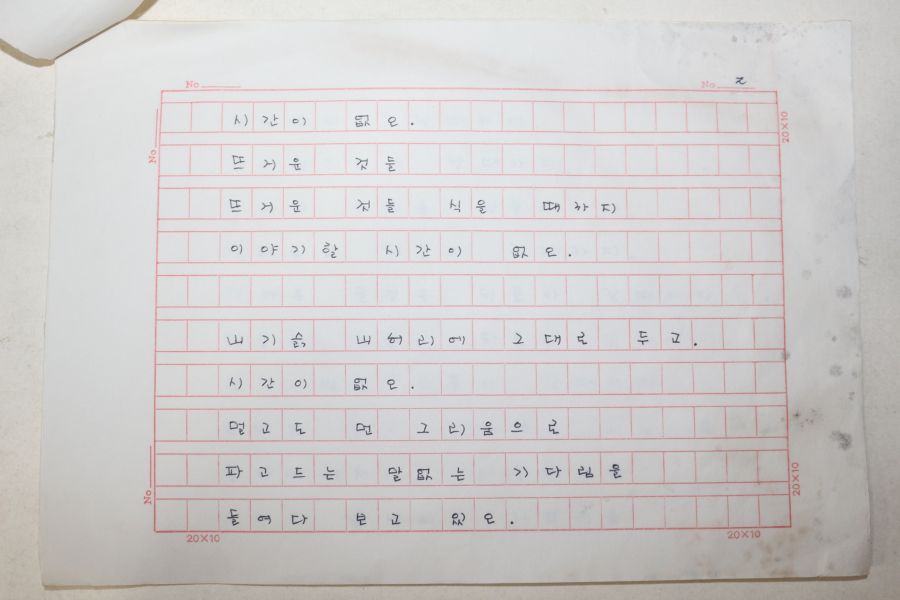 No
No 2
시간이 없오.
뜨거운 것들
뜨거운 것들 식을 때까지
이야기할 시간이 없오.
내 머리에 그대로 두고.
시간이 없오.
멀고도 먼 그리움으로
파고드는 말없는 기다림을
들여다 보고 있오.
No
No
20×10
20×10
20×10
20×10